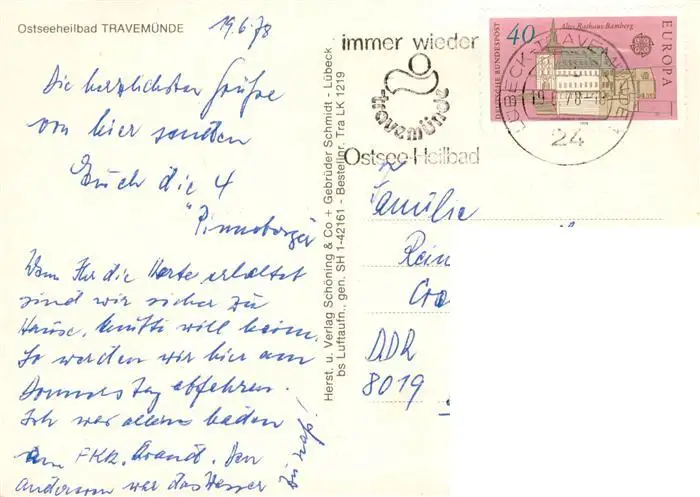 Ostseeheilbad TRAVEMÜNDE
19.6.78
Die herzlichsten Grüße
von hier senden
Euch die 4
"Pinneberger
Wenn Ihr die Karte erhaltet
sind wir sicher zu
Hause. Mutti will heim.
So werden wir hier am
Donnerstag abfahren.
Ich war allein baden
am FKK. Strand. Den
anderen war das Wasser
zu naß!
Herst. u. Verlag Schöning & Co + Gebrüder Schmidt - Lübeck
bs Luftaufn., gen. SH 1-42161 - Bestellnr. Tra LK 1219
immer wieder
travemünde
Ostsee-Heilbad
DEUTSCHE BUNDESPOST
40
Altes Rathaus Bamberg
EUROPA
LÜBECK-TRAVEMÜNDE
19.6.78-18
24
Familie
Rein
DDR
8019